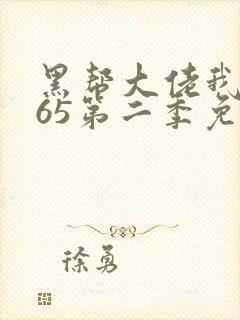 黑帮大佬我
65第二季免
徐勇